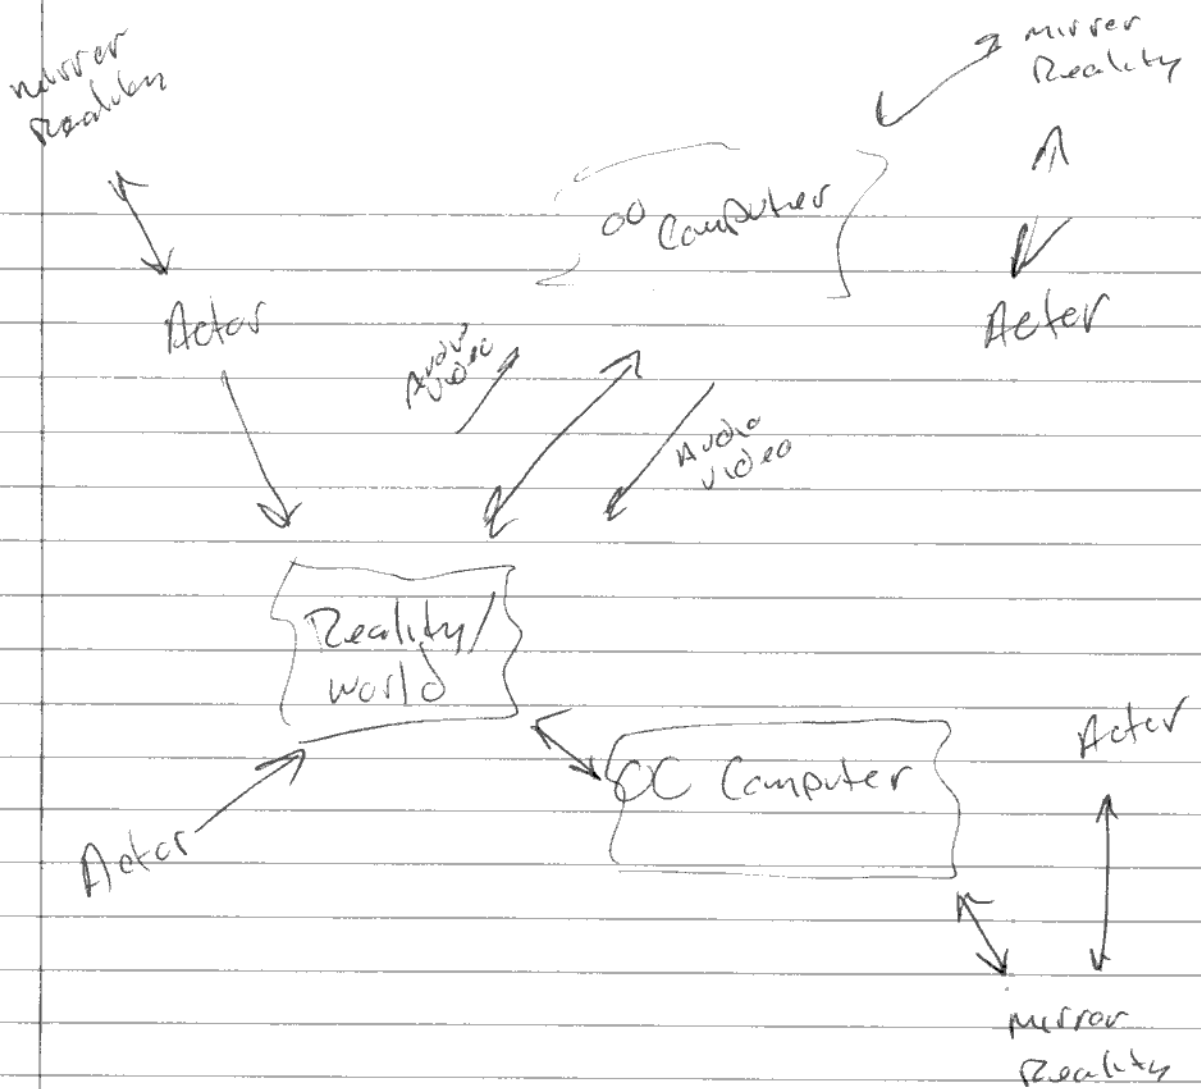 mirror
Reality
mirrer
Reality
OO Computer
Actor
Acter
Audio
Video
Audio
Video
Reality/
World
OC Computer
Acter
Actor
mirror
Reality